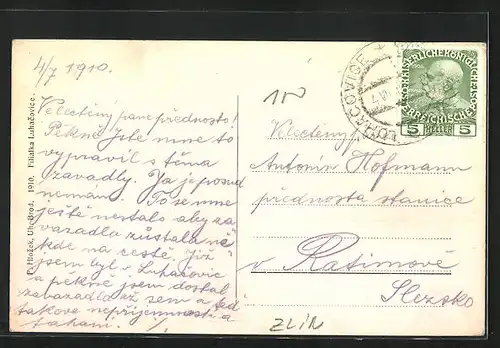 4/7 1910.
Velectěný pane přednosto!
Pěkně jste mne to
vypravil s těma
zavadly. Ja je posud
nemám. To se mne
ještě nestalo aby za
vazadla zůstala ně
kde na cestě. Již
jsem byl v Luhačovic
a pěkně jsem dostal
zavazadla až sem a teď
takove nepříjemnosti a
tahání.
P. Hložek, Uh. Brod. 1910. Filialka Luhačovice.
LUHAČOVICE
KAISERLICHE KÖNIGLICHE
ÖSTERREICHISCHE POST
5 HELLER 5
Velectěný
Antonín Hofmann
přednosta stanice
v Ratimově
Slezsko
ZLIN